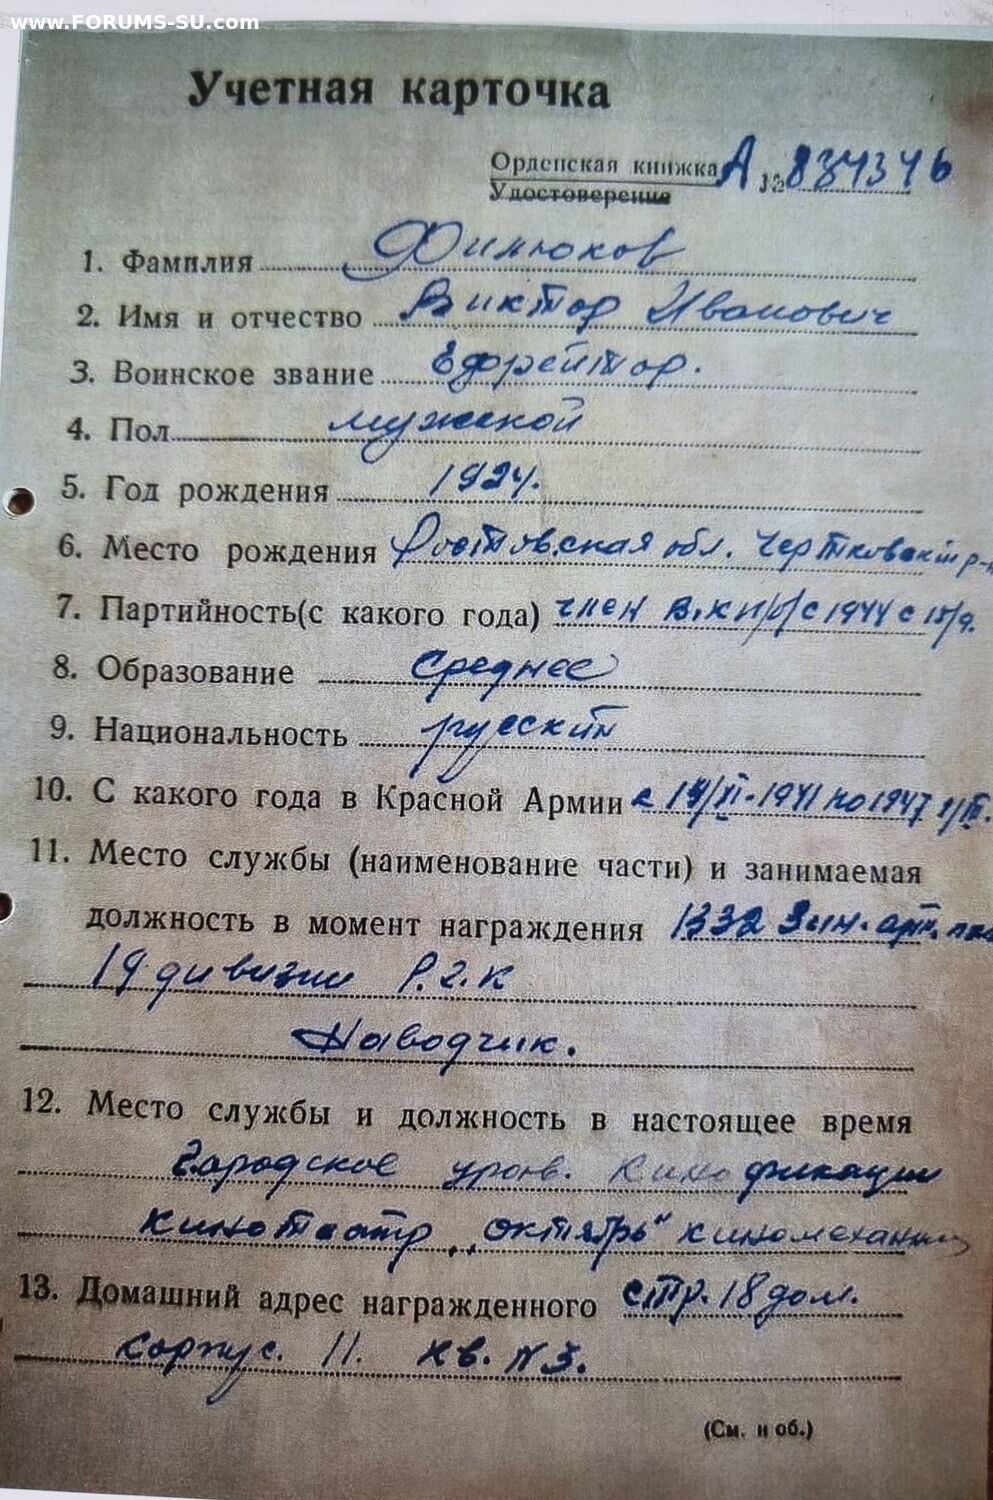 www.FORUMS-SU.com
Учетная карточка
Орденская книжка А №
Удостоверение
1. Фамилия Филюков
2. Имя и отчество Виктор Иванович
3. Воинское звание Ефрейтор.
4. Пол мужской
5. Год рождения 1924.
6. Место рождения Ростовская обл. Чертковский р-н
7. Партийность(с какого года) член В.К.П/б/ с 1944 с
8. Образование Среднее
9. Национальность русский
10. С какого года в Красной Армии с XI-1941 по 1947
11. Место службы (наименование части) и занимаемая
должность в момент награждения 1332 Зин. арт.
19 дивизии Р.Г.К
Наводчик.
12. Место службы и должность в настоящее время
Городское управ. Кинофикации
кинотеатр „Октябрь" киномеханик
13. Домашний адрес награжденного стр. 18 дом.
корпус. 11. кв. N 3.
(См. н об.)